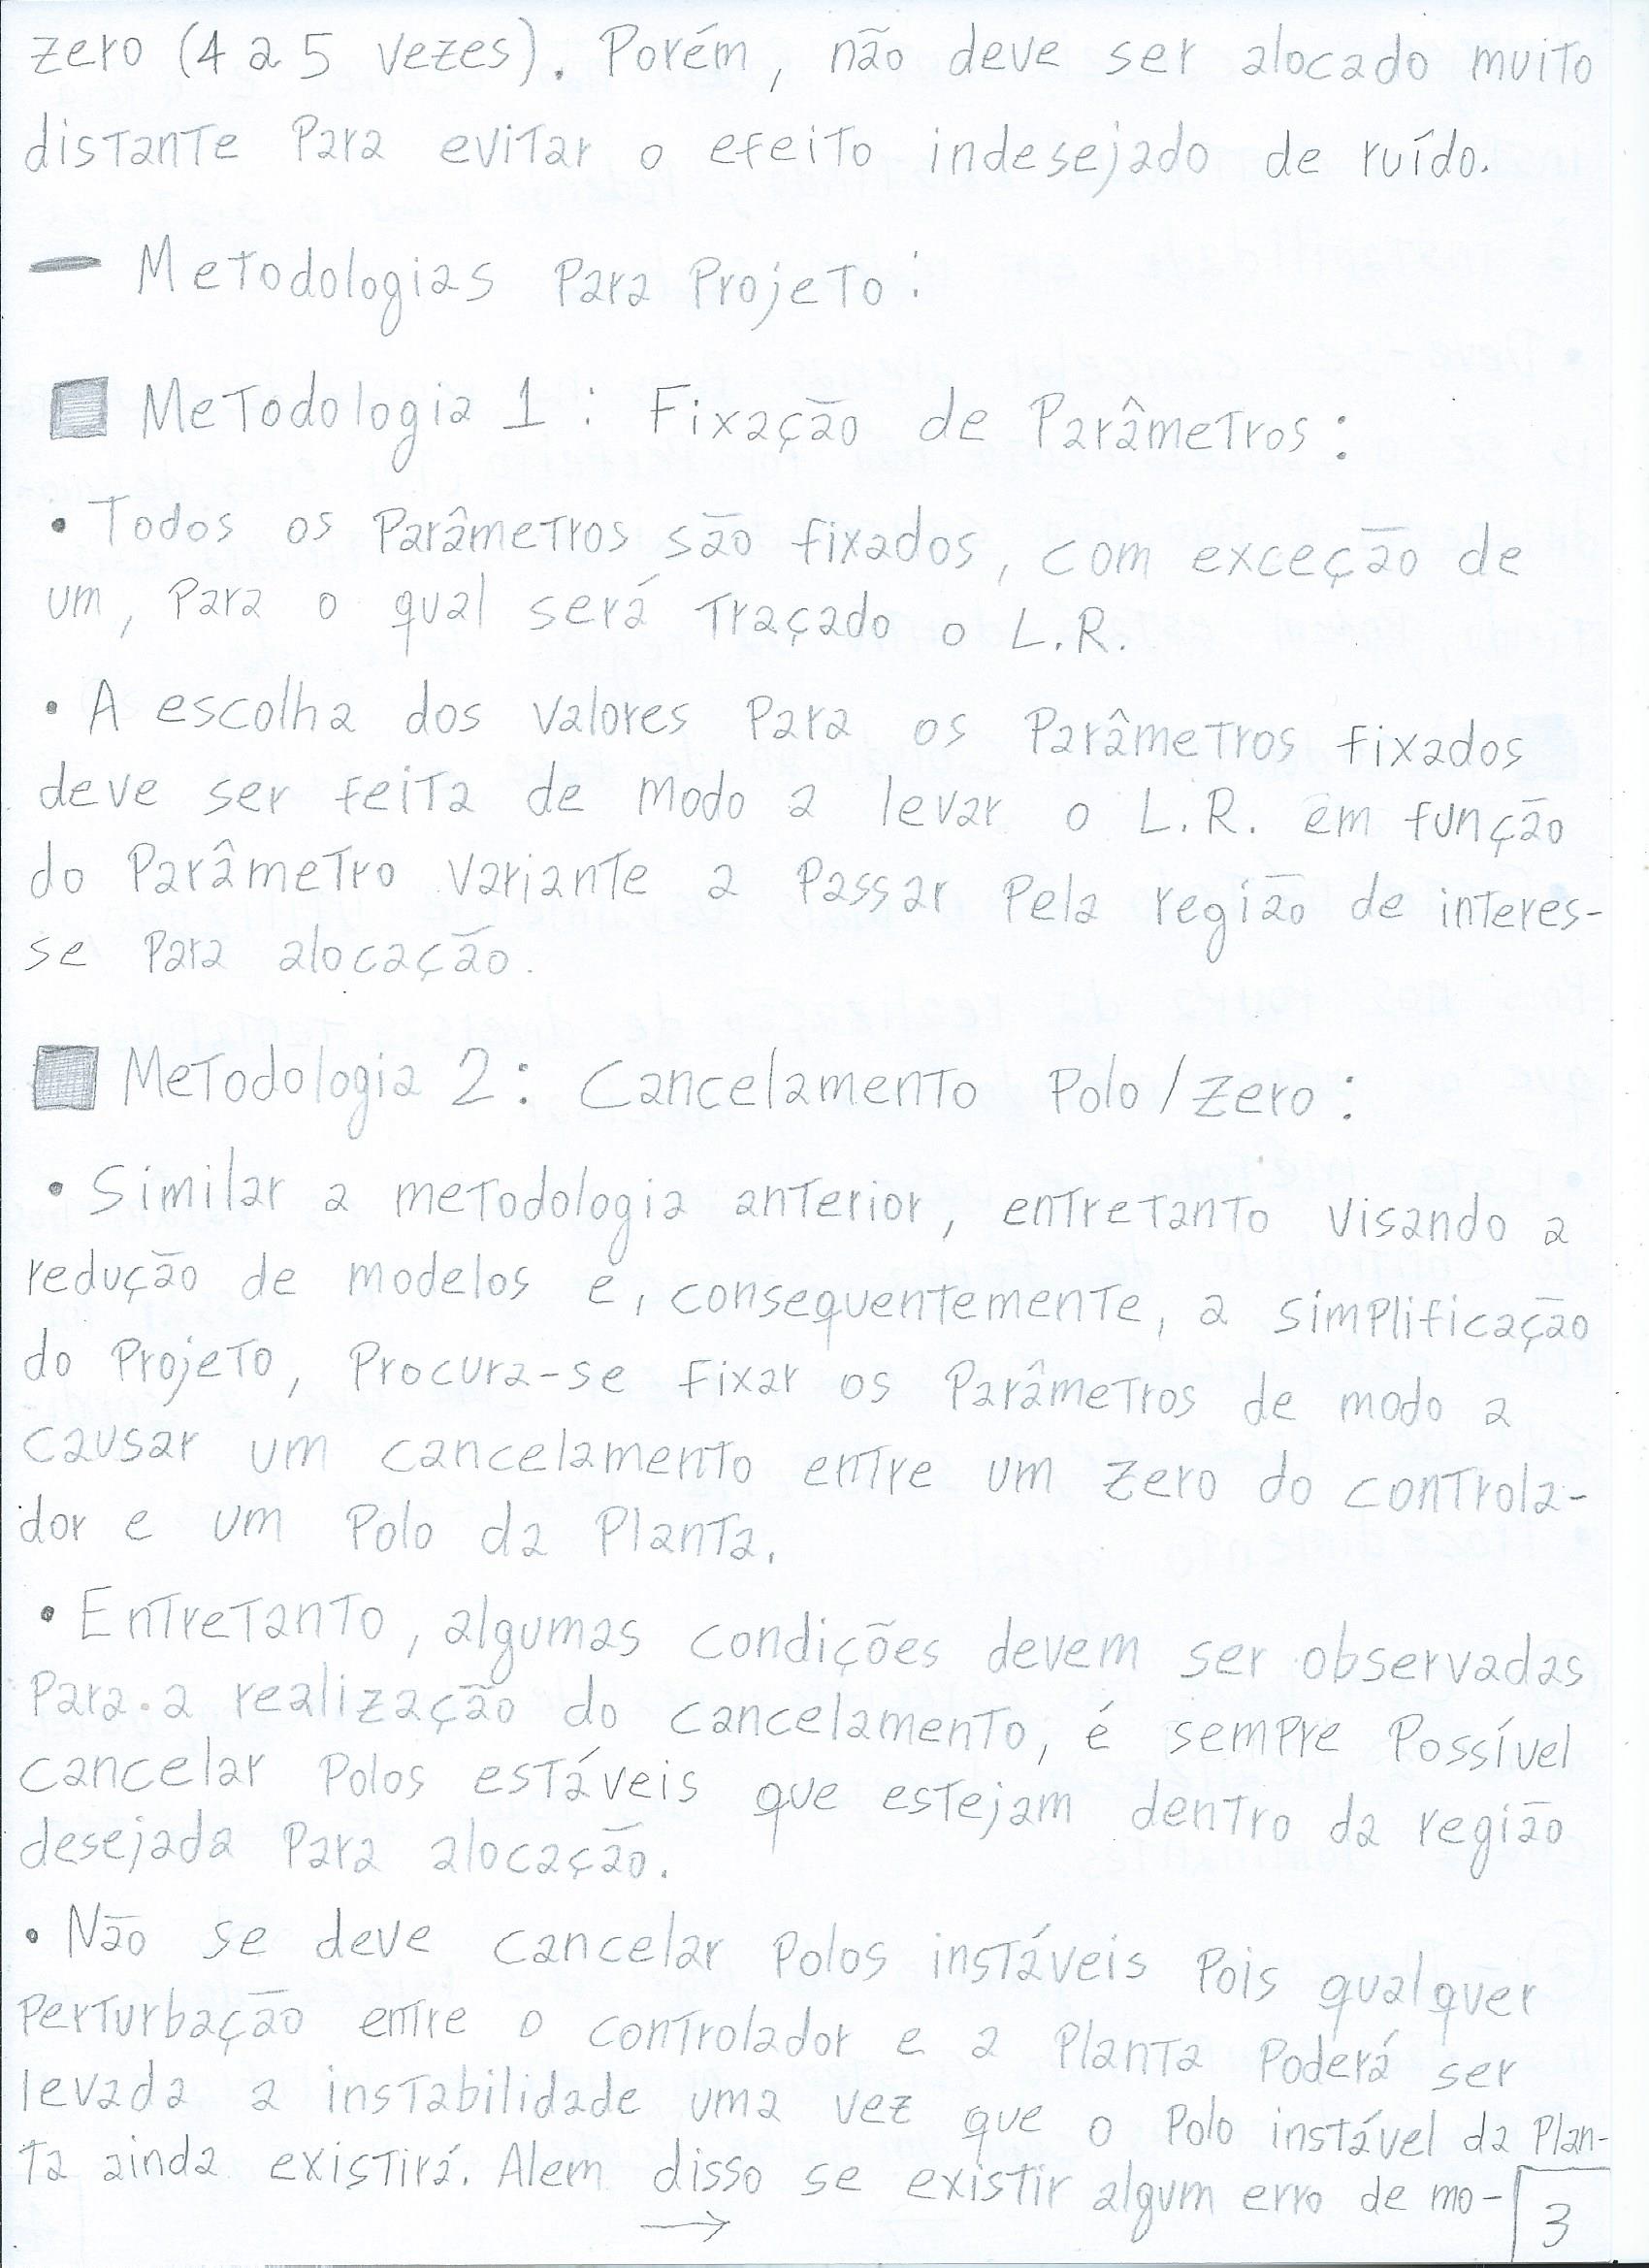 zero (4 a 5 vezes). Porém, não deve ser alocado muito
distante para evitar o efeito indesejado de ruído.
— Metodologias para projeto:
Metodologia 1: Fixação de Parâmetros:
• Todos os parâmetros são fixados, com exceção de
um, para o qual será traçado o L.R.
• A escolha dos valores para os parâmetros fixados
deve ser feita de modo a levar o L.R. em função
do parâmetro variante a passar pela região de interes-
se para alocação.
Metodologia 2: Cancelamento Polo/Zero:
• Similar a metodologia anterior, entretanto visando a
redução de modelos e, consequentemente, a simplificação
do projeto, procura-se fixar os parâmetros de modo a
causar um cancelamento entre um zero do controla-
dor e um polo da planta.
• Entretanto, algumas condições devem ser observadas
para a realização do cancelamento, é sempre possível
cancelar polos estáveis que estejam dentro da região
desejada para alocação.
• Não se deve cancelar polos instáveis pois qualquer
perturbação entre o controlador e a planta poderá ser
levada a instabilidade uma vez que o polo instável da plan-
ta ainda existirá. Alem disso se existir algum erro de mo-
→
3